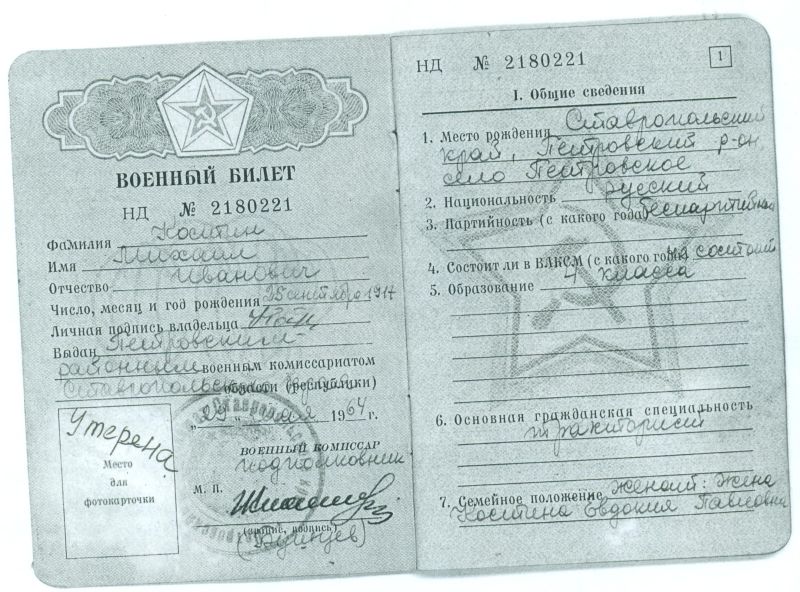 ВОЕННЫЙ БИЛЕТ
НД № 2180221
Фамилия Коситин
Имя Михаил
Отчество Иванович
Число, месяц и год рождения 25 сентября 1917
Личная подпись владельца
Выдан Петровским
районным военным комиссариатом
Ставропольского края области (республики)
„29“ мая 1964 г.
Утеряна
Место
для
фотокарточки
ВОЕННЫЙ КОМИССАР
подполковник
М. П.
(звание, подпись)
НД № 2180221
1
I. Общие сведения
1. Место рождения Ставропольский
край, Петровский р-он,
село Петровское
2. Национальность русский
3. Партийность (с какого года) беспартийный
4. Состоит ли в ВЛКСМ (с какого года) не состоит
5. Образование 4 класса
6. Основная гражданская специальность
тракторист
7. Семейное положение женат: жена
Коситина Евдокия Павловна